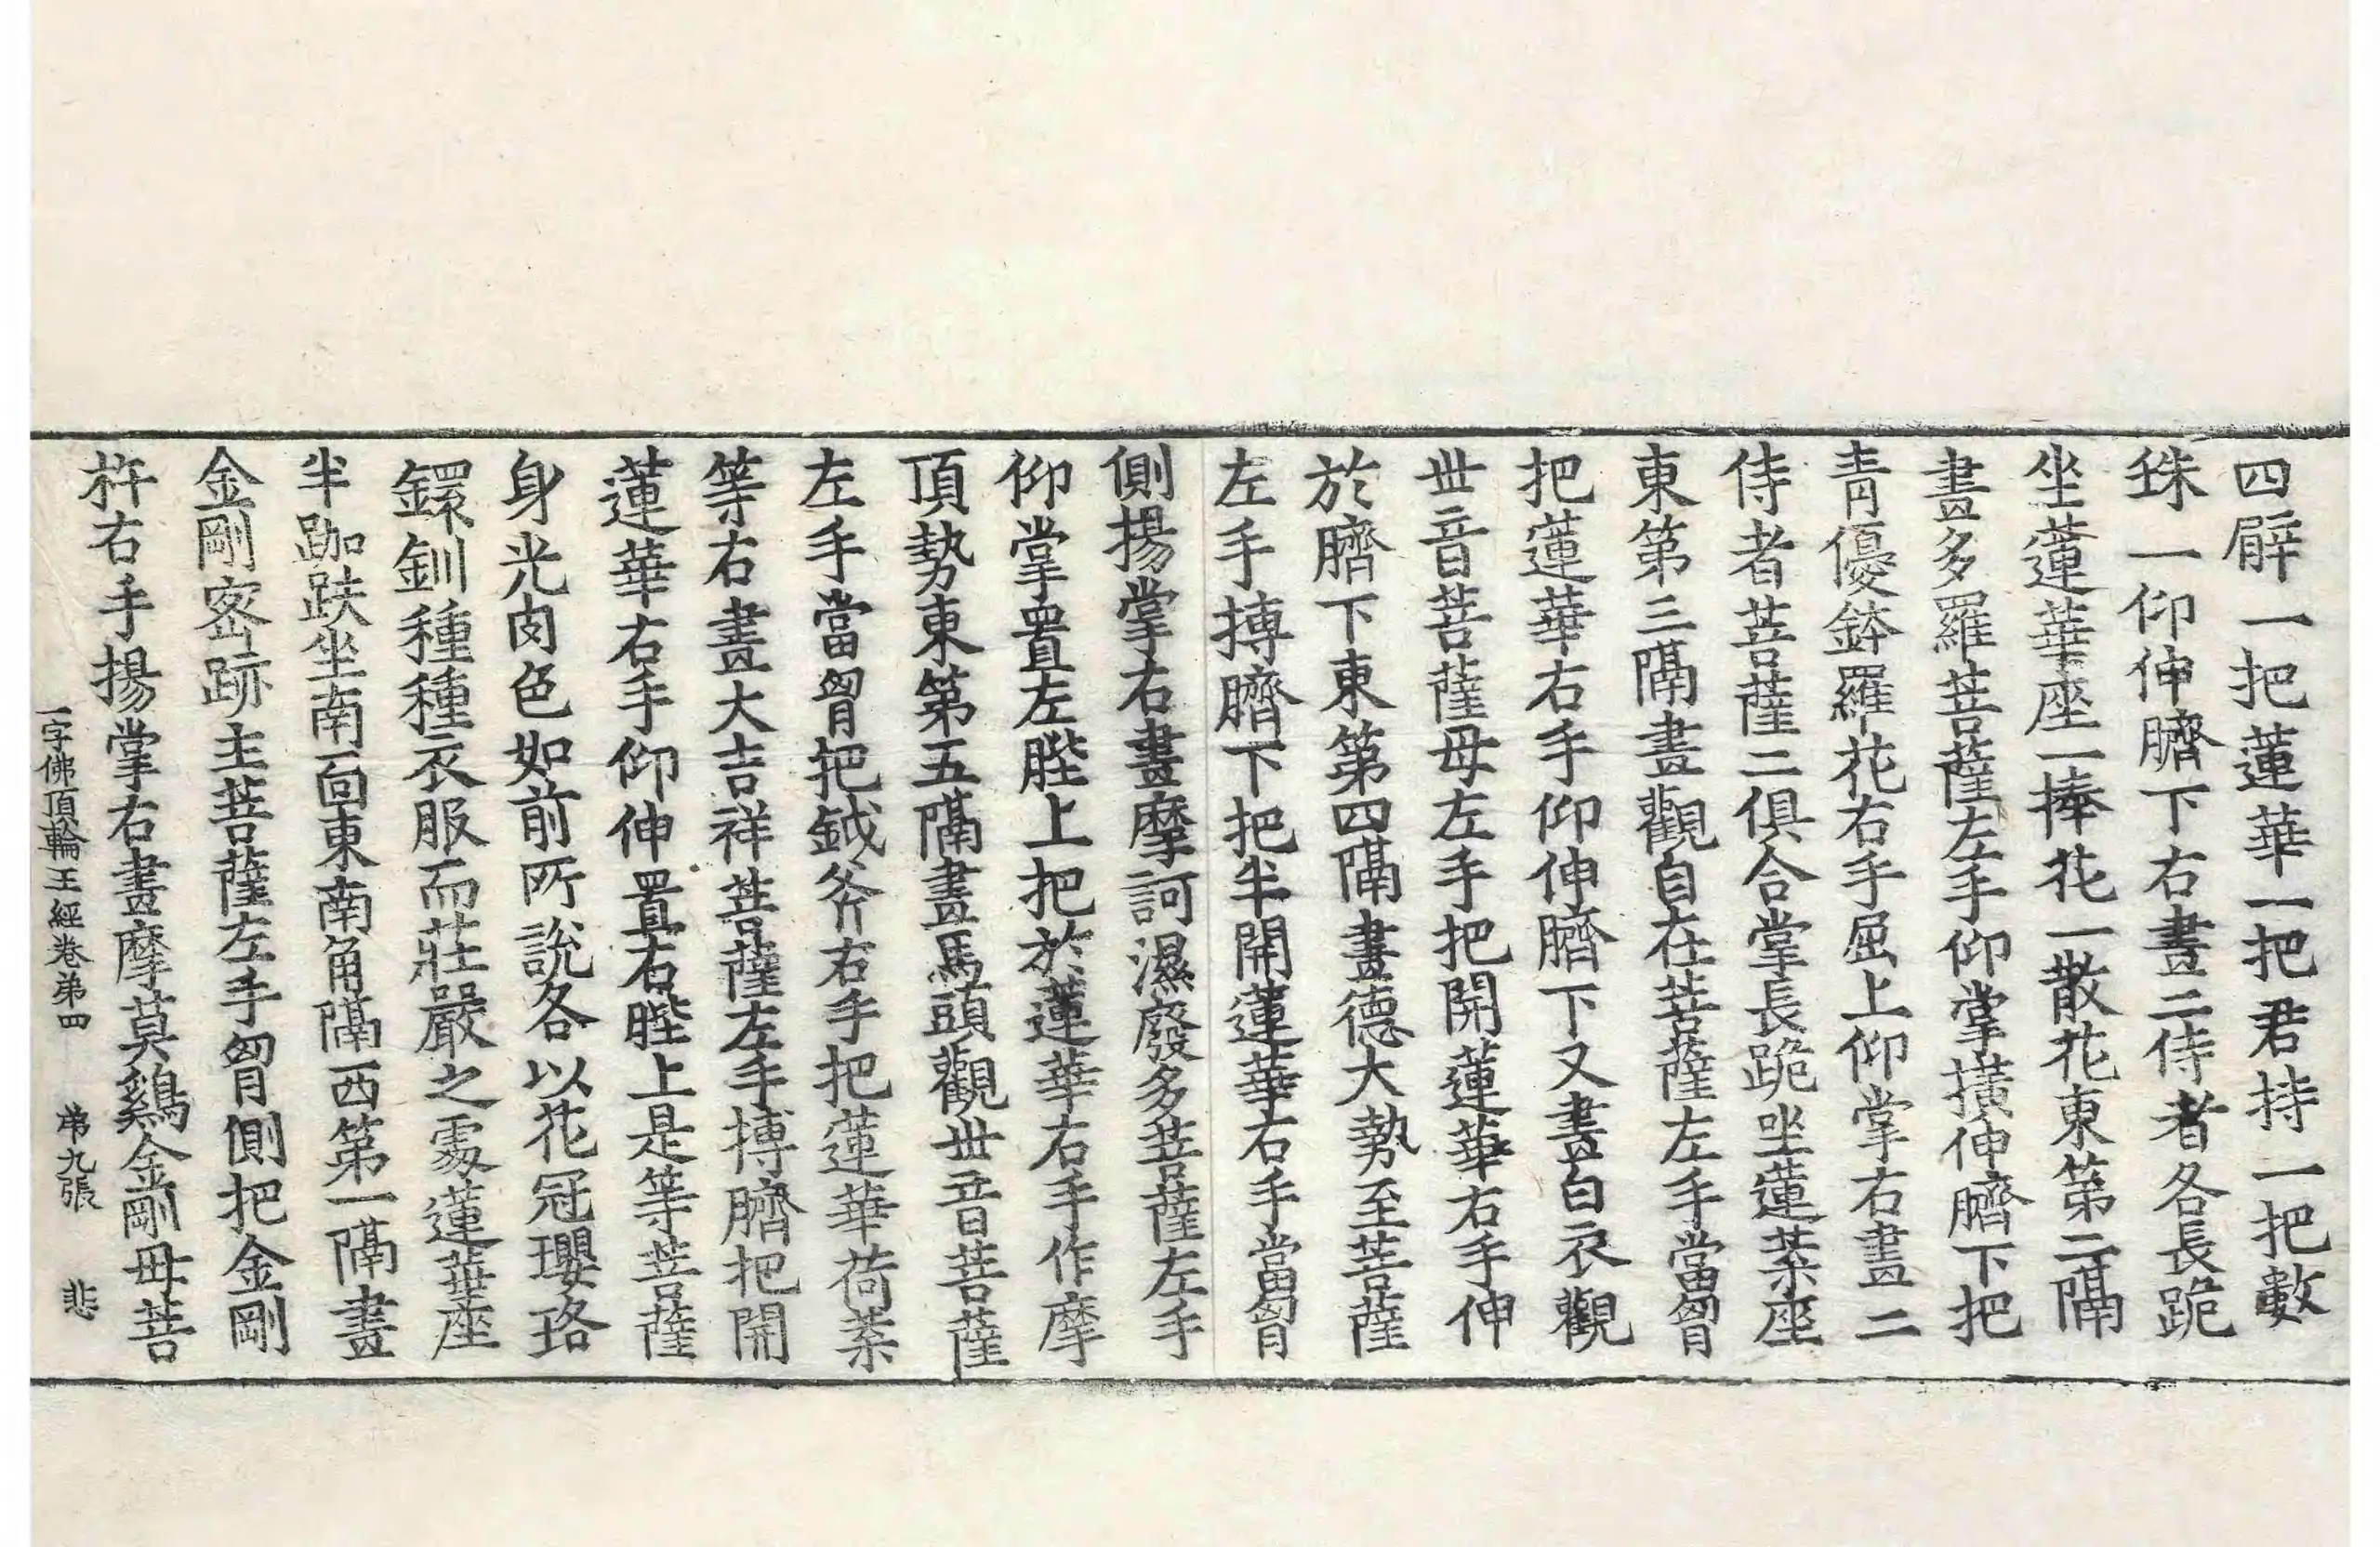 四臂一把蓮華一把君持一把數
珠一仰伸臍下右畫二侍者各長跪
坐蓮華座一捧花一散花東第二隔
畫多羅菩薩左手仰掌撗伸臍下把
青優鉢羅花右手屈上仰掌右畫二
侍者菩薩二俱合掌長跪坐蓮葉座
東第三隔畫觀自在菩薩左手當胷
把蓮華右手仰伸臍下又畫白衣觀
世音菩薩母左手把開蓮華右手伸
於臍下東第四隔畫德大勢至菩薩
左手搏臍下把半開蓮華右手當胷
側揚掌右畫摩訶濕廢多菩薩左手
仰掌置左䏶上把於蓮華右手作摩
頂勢東第五隔畫馬頭觀世音菩薩
左手當胷把鉞斧右手把蓮華荷葉
等右畫大吉祥菩薩左手搏臍把開
蓮華右手仰伸置右䏶上是等菩薩
身光肉色如前所說各以花冠瓔珞
鐶釧種種衣服而莊嚴之處蓮華座
半跏趺坐南面東南角隔西第一隔畫
金剛密跡主菩薩左手胷側把金剛
杵右手揚掌右畫摩莫鷄金剛母菩
一字佛頂輪王經卷弟四 弟九張 悲